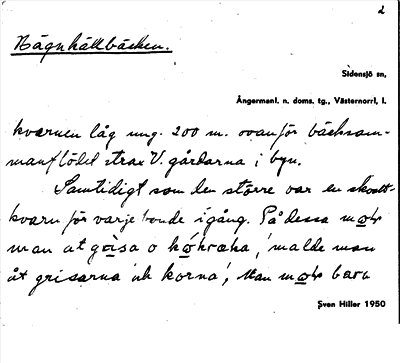 2
Hägnhällbäcken.
Sidensjö sn,
Ångermanl. n. doms. tg., Västernorrl. l.
kvarnen låg ung. 200 m. ovanför bäcksam-
manflödet strax V. gårdarna i byn.
Samtidigt som den större var en skvalt-
kvarn för varje bonde igång. På dessa
man at o malde man
åt grisarna å korna, Man bara
Sven Hiller 1950